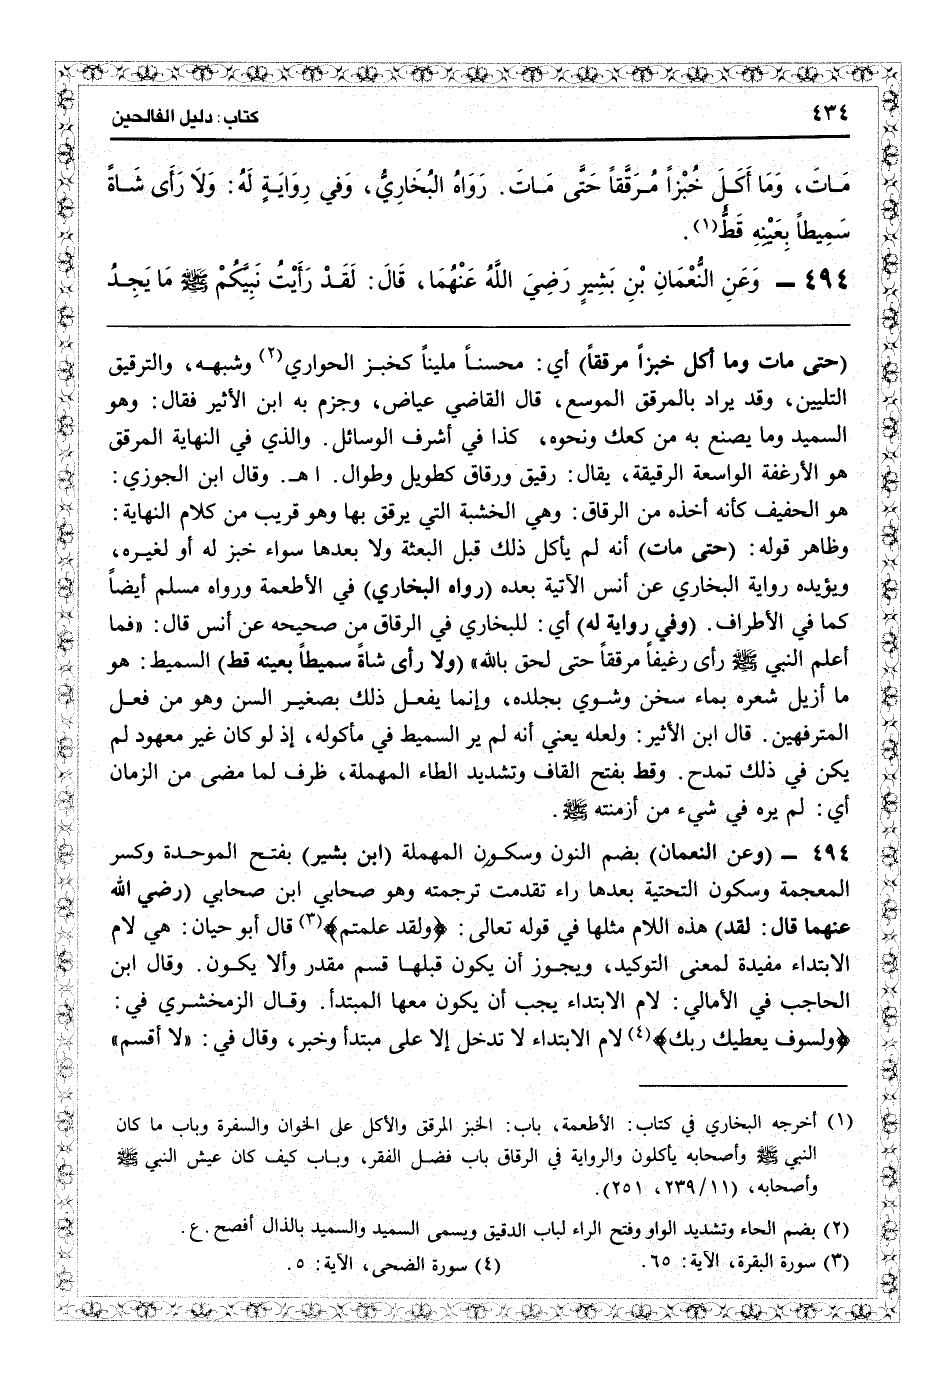 ٤٣٤
كتاب: دليل الفالحين
مَـاتَ، وَمَا أَكَـلَ خُبْزاً مُـرَقَّقاً حَتَّى مَـاتَ. رَوَاهُ الْبُخَارِيُّ، وَفي رِوَايَـةٍ لَهُ: وَلَا رَأَى شَـاةً
سَمِيطاً بِعَيْنِهِ قَطُّ(١).
٤٩٤ ـ وَعَنِ النُّعْمَانِ بْنِ بَشِيرٍ رَضِيَ اللَّهُ عَنْهُمَا، قَالَ: لَقَـدْ رَأَيْتُ نَبِيَّكُمْ ﷺ مَا يَجِدُ
(حتى مات وما أكل خبزاً مرققاً) أي: محسنـاً مليناً كخبز الحواري(٢) وشبهـه، والترقيق
التليين، وقد يراد بالمرقق الموسع، قال القاضي عياض، وجزم به ابن الأثير فقال: وهو
السميد وما يصنع به من كعك ونحوه، كذا في أشرف الوسائل. والذي في النهاية المرقق
هو الأرغفة الواسعة الرقيقة، يقال: رقيق ورقاق كطويل وطوال. ا هـ. وقال ابن الجوزي:
هو الحفيف كأنه أخذه من الرقاق: وهي الخشبة التي يرقق بها وهو قريب من كلام النهاية:
وظاهر قوله: (حتى مات) أنه لم يأكل ذلك قبل البعثة ولا بعدها سواء خبز له أو لغيـره،
ويؤيده رواية البخاري عن أنس الآتية بعده (رواه البخاري) في الأطعمة ورواه مسلم أيضاً
كما في الأطراف. (وفي رواية له) أي: للبخاري في الرقاق من صحيحه عن أنس قال: «فما
أعلم النبي ﷺ رأى رغيفاً مرققاً حتى لحق بالله» (ولا رأى شاةً سميطاً بعينه قط) السميط: هو
ما أزيل شعره بماء سخن وشوي بجلده، وإنما يفعـل ذلك بصغيـر السن وهو من فعـل
المترفهين. قال ابن الأثير: ولعله يعني أنه لم ير السميط في مأكوله، إذ لو كان غير معهود لم
يكن في ذلك تمدح. وقط بفتح القاف وتشديد الطاء المهملة، ظرف لما مضى من الزمان
أي: لم يره في شيء من أزمنته ﷺ.
٤٩٤ ـ (وعن النعمان) بضم النون وسكون المهملة (ابن بشير) بفتـح الموحـدة وكسر
المعجمة وسكون التحتية بعدها راء تقدمت ترجمته وهو صحابي ابن صحابي (رضي الله
عنهما قال: لقد) هذه اللام مثلها في قوله تعالى: ﴿ولقد علمتم﴾(٣) قال أبو حيان: هي لام
الابتداء مفيدة لمعنى التوكيد، ويجـوز أن يكون قبلهـا قسم مقدر وألا يكـون. وقال ابن
الحاجب في الأمالي: لام الابتداء يجب أن يكون معها المبتدأ. وقـال الزمخشري في:
﴿ولسوف يعطيك ربك﴾(٤) لام الابتداء لا تدخل إلا على مبتدأ وخبر، وقال في: «لا أقسم»
(١) أخرجه البخاري في كتاب: الأطعمة، باب: الخبز المرقق والأكل على الخوان والسفرة وباب ما كان
النبي ﷺ وأصحابه يأكلون والرواية في الرقاق باب فضـل الفقر، وبـاب كيف كان عيش النبي ﷺ
وأصحابه، (٢٣٩/١١، ٢٥١).
(٢) بضم الحاء وتشديد الواو وفتح الراء لباب الدقيق ويسمى السميد والسميد بالذال أفصح. ع.
(٣) سورة البقرة، الآية: ٦٥.
(٤) سورة الضحى، الآية: ٥.